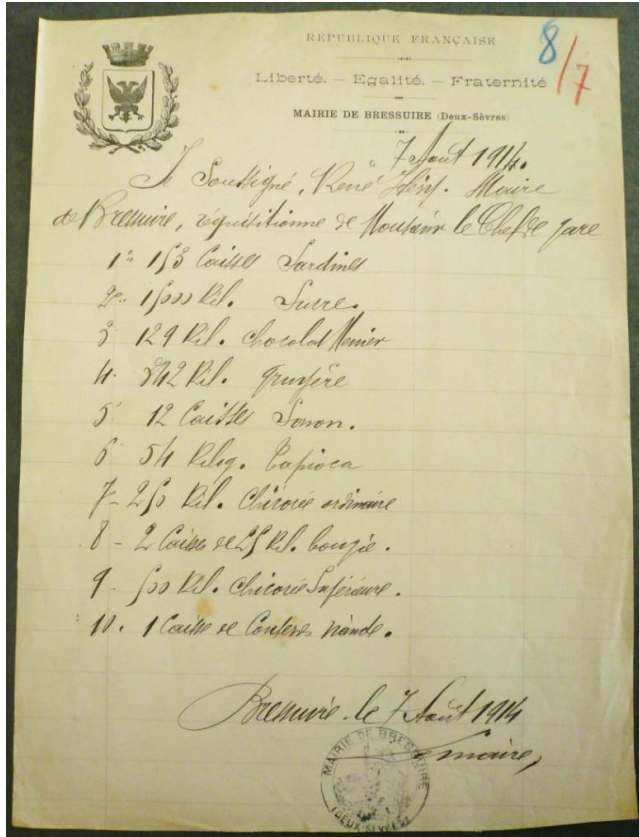 RÉPUBLIQUE FRANÇAISE
8/7
Liberté. — Egalité. — Fraternité
MAIRIE DE BRESSUIRE (Deux-Sèvres)
7 Août 1914.
Je Soussigné, René Héry. Maire
de Bressuire, réquisitionne de Monsieur le Chef de gare
1° 153 Caisses Sardines
2° 1500 Kil. Sucre.
3° 129 Kil. chocolat Menier
4. 342 Kil. Gruyère
5° 12 Caisses Savon.
6° 54 Kilog. Tapioca
7 - 250 Kil. Chicorée ordinaire
8 - 2 Caisses de 25 Kil. bougie.
9 - 500 Kil. Chicorée Supérieure.
10. 1 Caisse de Conserves viande.
Bressuire le 7 Août 1914
maire,
MAIRIE DE BRESSUIRE
(DEUX-SÈVRES)